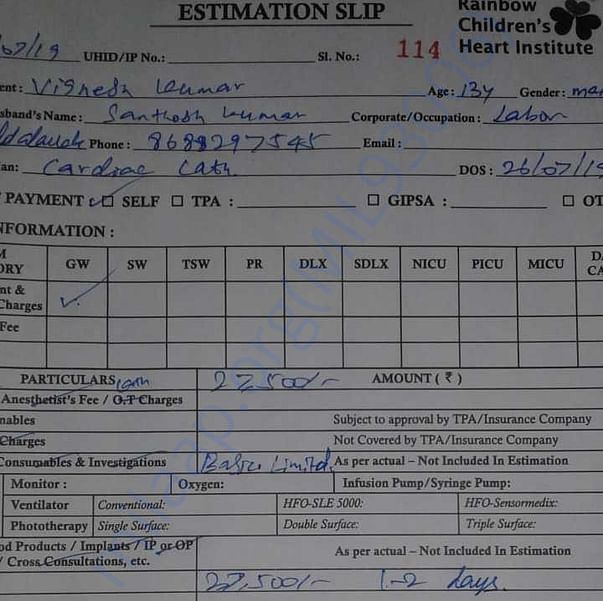 ESTIMATION SLIP
Rainbow
Children's
Heart Institute
/07/19 UHID/IP No.: Sl. No.: 114
ent: Vignesh Kumar Age: 13y Gender: mal
sband's Name: Santhosh Kumar Corporate/Occupation: Labor
Phone: 8688297545 Email:
an: Cardiac Cath DOS: 26/07/19
PAYMENT ☑ SELF ☐ TPA : ☐ GIPSA : ☐ OT
FORMATION :
M
ORY GW SW TSW PR DLX SDLX NICU PICU MICU DA
CA
nt &
Charges ✓
Fee
PARTICULARS Cath 27,500/- AMOUNT ( ₹ )
Anesthetist's Fee / O.T Charges
nables Subject to approval by TPA/Insurance Company
Charges Not Covered by TPA/Insurance Company
Consumables & Investigations Basic Limited. As per actual – Not Included In Estimation
Monitor : Oxygen: Infusion Pump/Syringe Pump:
Ventilator Conventional: HFO-SLE 5000: HFO-Sensormedix:
Phototherapy Single Surface: Double Surface: Triple Surface:
od Products / Implants / IP or OP As per actual – Not Included In Estimation
/ Cross Consultations, etc.
27,500/- 1-2 days.